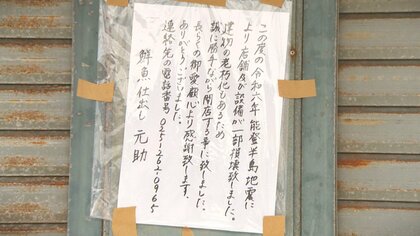 この度の令和六年 能登半島地震に
より店舗及び設備が一部損壊致しました。
建物の老朽化もあるため
誠に勝手ながら閉店する事に致しました。
長らくの御愛顧心より感謝致します。
ありがとうございました。
連絡先の電話番号 025-262-0965
鮮魚仕出し 元助